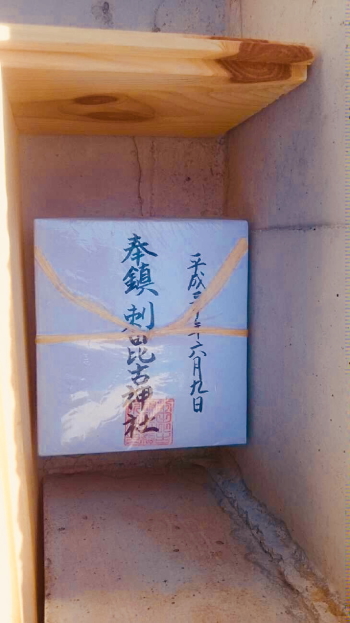 平成三十年六月九日
奉鎮 刺田比古神社